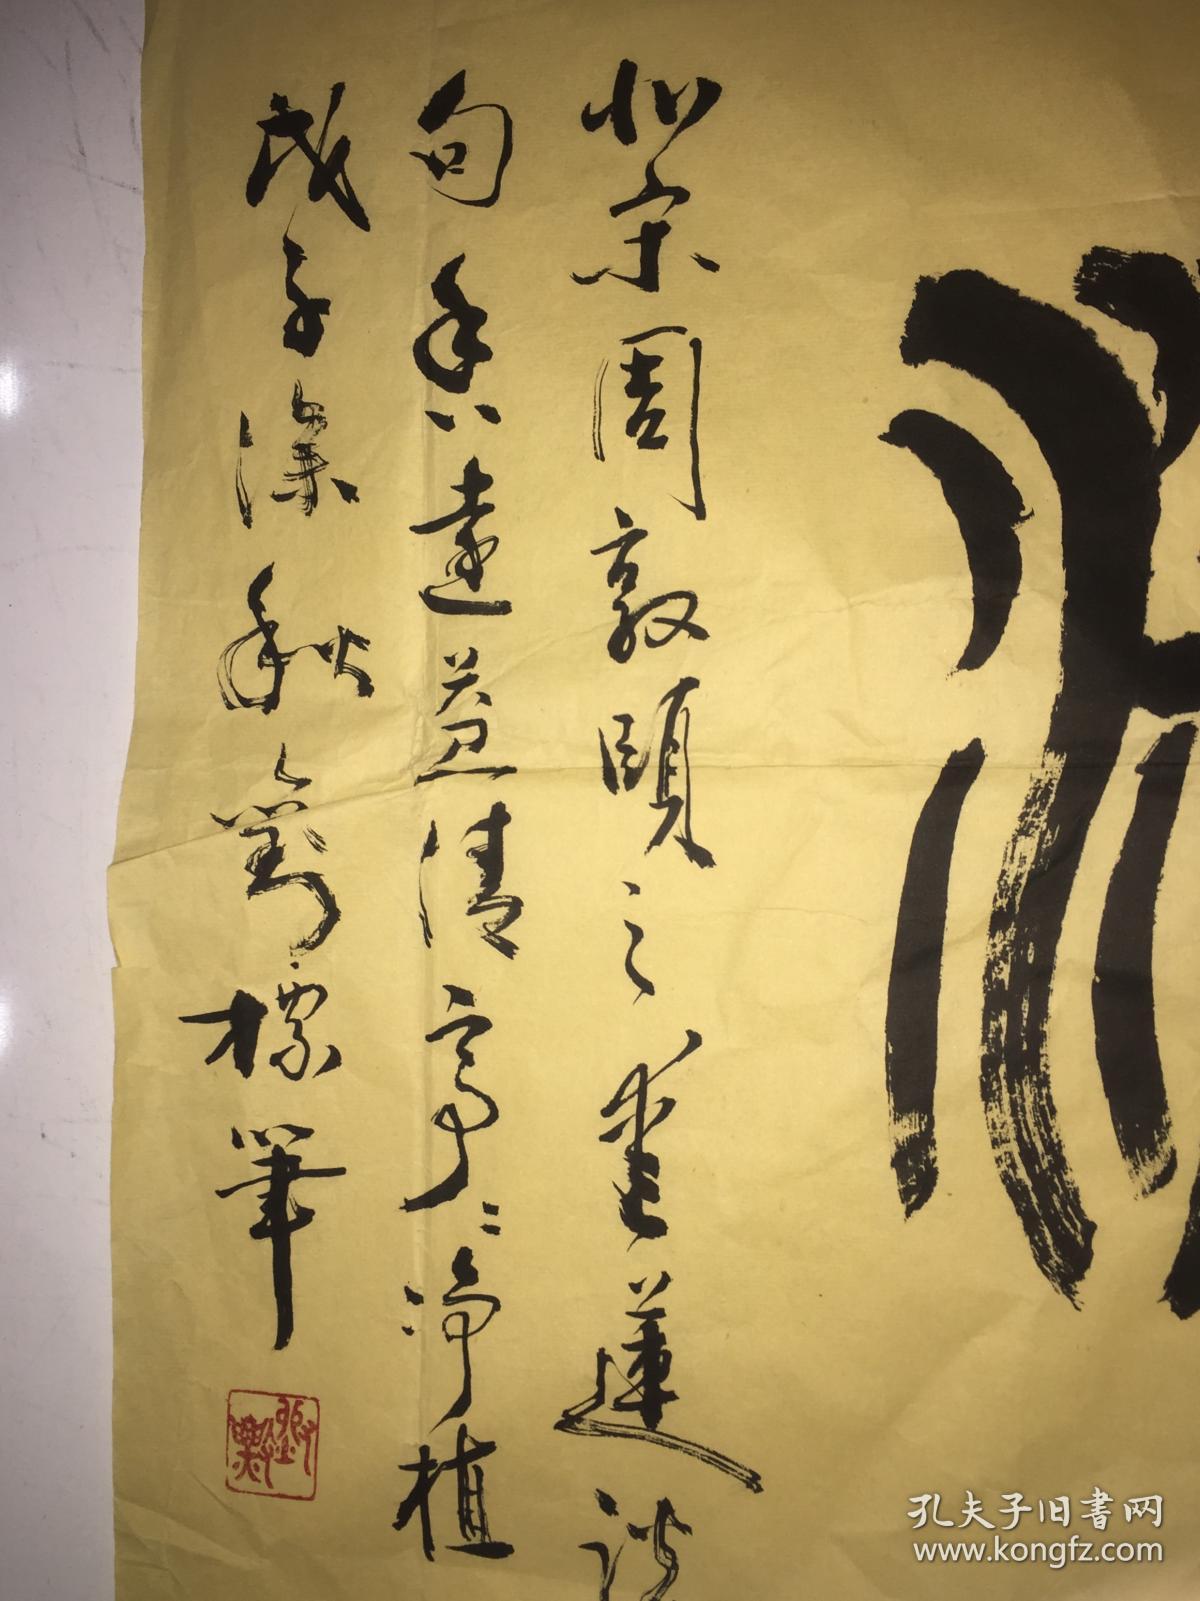 北宋周敦頤之愛蓮說
句香遠益清亭﹦淨植
戊子深秋劉標筆
孔夫子旧書网
www.kongfz.com